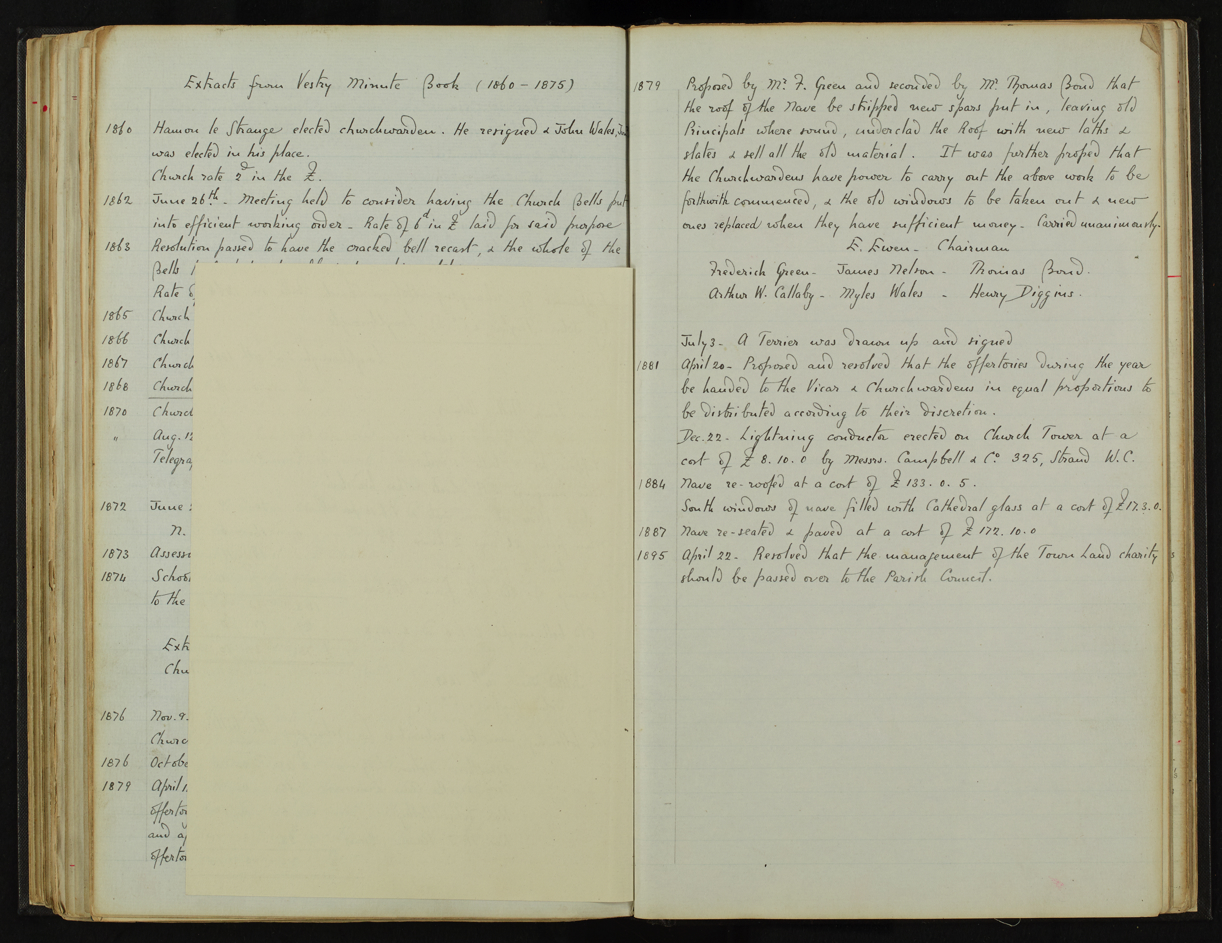 Extracts from Vestry Minute Book (1860 - 1875)
1860 Hamon le Strange elected churchwarden. He resigned & John Wales,
was elected in his place.
Church rate 2d in the £.
1862 June 26th - Meeting held to consider having the Church Bells put
into efficient working order - Rate of 6d in £ laid for said purpose
1863 Resolution passed to have the cracked bell recast, & the whole of the
Bells
Rate
1865 Church
1866 Church
1867 Church
1868 Church
1870 Church
" Aug. 12
Telegra
1872 June
N.
1873 Assess
1874 School
to the
Ext
Chu
1876 Nov. 9.
Churc
1876 Octobe
1879 April 1
offertor
and a
offertor
1879 Proposed by Mr F. Green and seconded by Mr Thomas Bond that
the roof of the Nave be stripped new spars put in, leaving old
Principals where sound, underclad the Roof with new laths &
slates & sell all the old material. It was further proped that
the Churchwardens have power to carry out the above work to be
forthwith commenced, & the old windows to be taken out & new
ones replaced when they have sufficient money - Carried unanimously.
E. Ewen - Chairman
Frederich Green - James Nelson - Thomas Bond.
Arthur W. Callaby - Myles Wales - Henry Diggins.
July 3 - A Terrier was drawn up and signed
1881 April 20 - Proposed and resolved that the offertories during the year
be handed to the Vicar & Churchwardens in equal proportions to
be distributed according to their discretion.
Dec. 22 - Lightning conductor erected on Church Tower at a
cost of £ 8. 10. 0 by Messrs. Campbell & Co 325, Strand W.C.
1884 Nave re-roofed at a cost of £ 133. 0. 5.
South windows of nave filled with Cathedral glass at a cost of £17. 3. 0.
1887 Nave re-seated & paved at a cost of £ 172. 10. 0
1895 April 22 - Resolved that the management of the Town Land charity
should be passed over to the Parish Council.